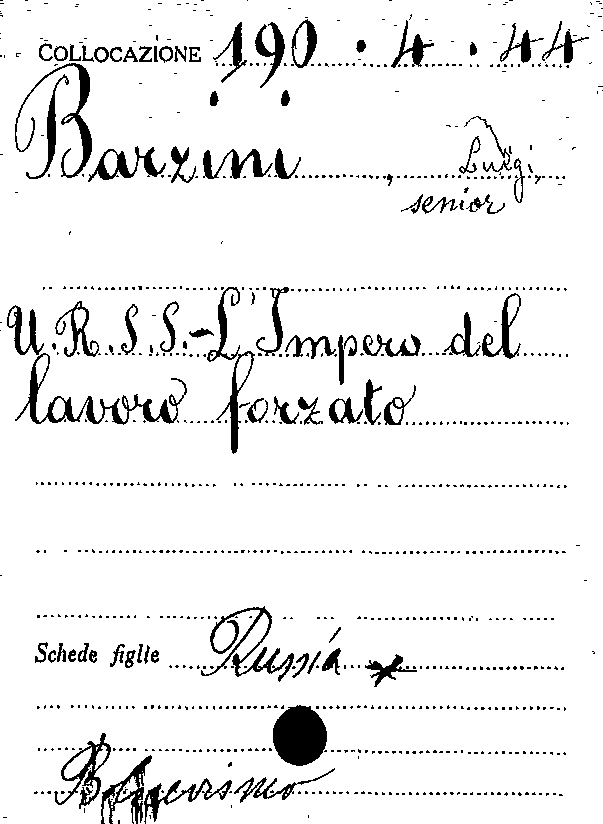 COLLOCAZIONE 190.4.44
Barzini, Luigi,
senior
U.R.S.S.-L'Impero del
lavoro forzato
Schede figlie Russia